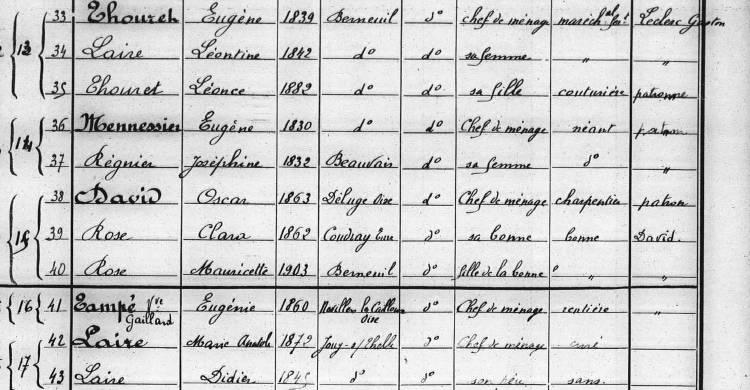 13 33 Thouret Eugène 1839 Berneuil do chef de ménage maréchal fert Leclerc Gaston
34 Laire Léontine 1842 do do sa femme " "
35 Thouret Léonce 1882 do do sa fille couturière patronne
14 36 Mennessier Eugène 1830 do do Chef de ménage néant patron
37 Régnier Joséphine 1832 Beauvais do sa femme do "
15 38 David Oscar 1863 Déluge Oise do Chef de ménage charpentier patron
39 Rose Clara 1862 Coudray Eure do sa bonne bonne David
40 Rose Mauricette 1903 Berneuil do fille de la bonne " "
16 41 Tampé Vve Gaillard Eugénie 1860 Oise do Chef de ménage rentière "
17 42 Laire Marie 1872 Jouy s/ Thelle do Chef de ménage curé
43 Laire Didier do do son père sans